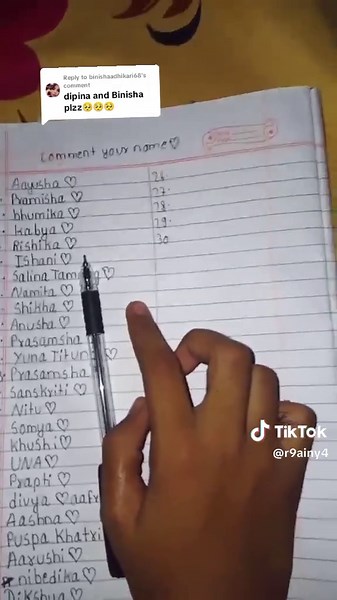 Reply to binishaadhikari68's
comment
dipina and Binisha
plzz🥺🥺🥺
Comment your name♡
Aayusha ♡
Pramisha ♡
bhumika ♡
kabya ♡
Rishika ♡
Ishani ♡
Salina Tamang ♡
Namita ♡
Shikha ♡
Anusha ♡
Prasamsha
Yuna Titung ♡
Prasamsha
Sanskriti ♡
Nitu ♡
Somya ♡
Khushi ♡
UNA ♡
Prapti ♡
divya ♡
Aashna ♡
Puspa Khatri
Aarushi ♡
nibedika ♡
Dikshya ♡
26.
27.
28.
29.
30
TikTok
@r9ainy4